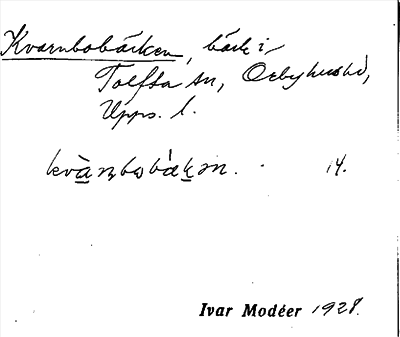 Kvarnbobäcken, bäck i
Tolfta sn, Örbyhus hd,
Upps. l.
kvàrnbobäkən. 14.
Ivar Modéer 1928.